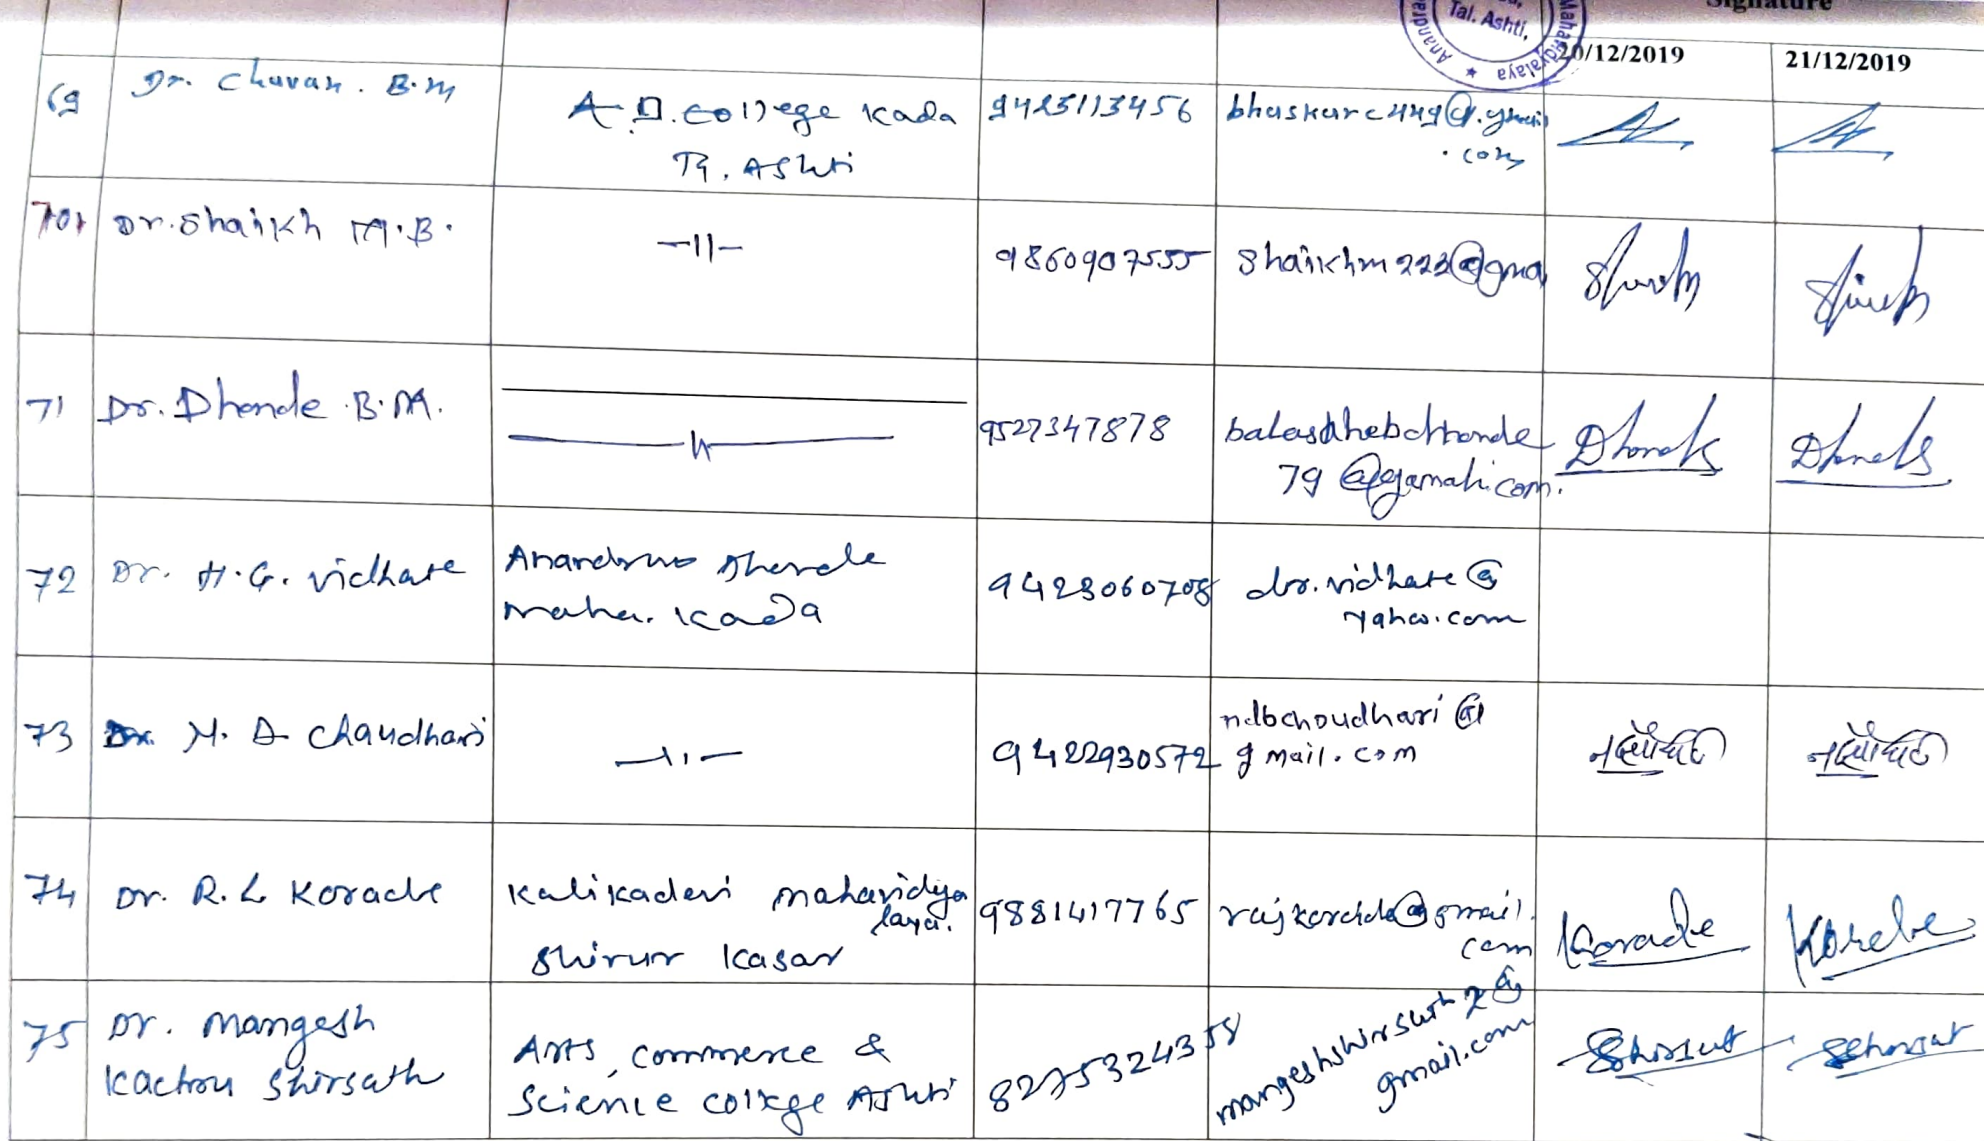 Signature
Tal. Ashti,
Mahavidyalaya
20/12/2019
21/12/2019
69
Dr. Chavan. B.M
A.D. College Kada
Tq. Ashti
9423113456
bhaskarc449@gmail
.com
70
Dr. Shaikh M.B.
-11-
9860907555
shaikhm223@gma
71
Dr. Dhonde B.M.
-11-
9527347878
balasahebdhonde
79@gamail.com.
Dhonde
Dhonde
72
Dr. H.G. Vidhate
Anandrao Dhonde
Maha. Kada
9423060708
dr.vidhate@
yahoo.com
73
Dr. N. D Chaudhari
-11-
9422930572
ndbchoudhari@
gmail.com
74
Dr. R. L Korade
Kalikadevi mahavidya
laya.
Shirur Kasar
9881417765
rajkorde@gmail.
com
Korade
Korade
75
Dr. Mangesh
Kachru Shirsath
Arts, commerce &
Science college Ashti
8275324358
mangeshshirsath2@
gmail.com
Shirsat
Shirsat